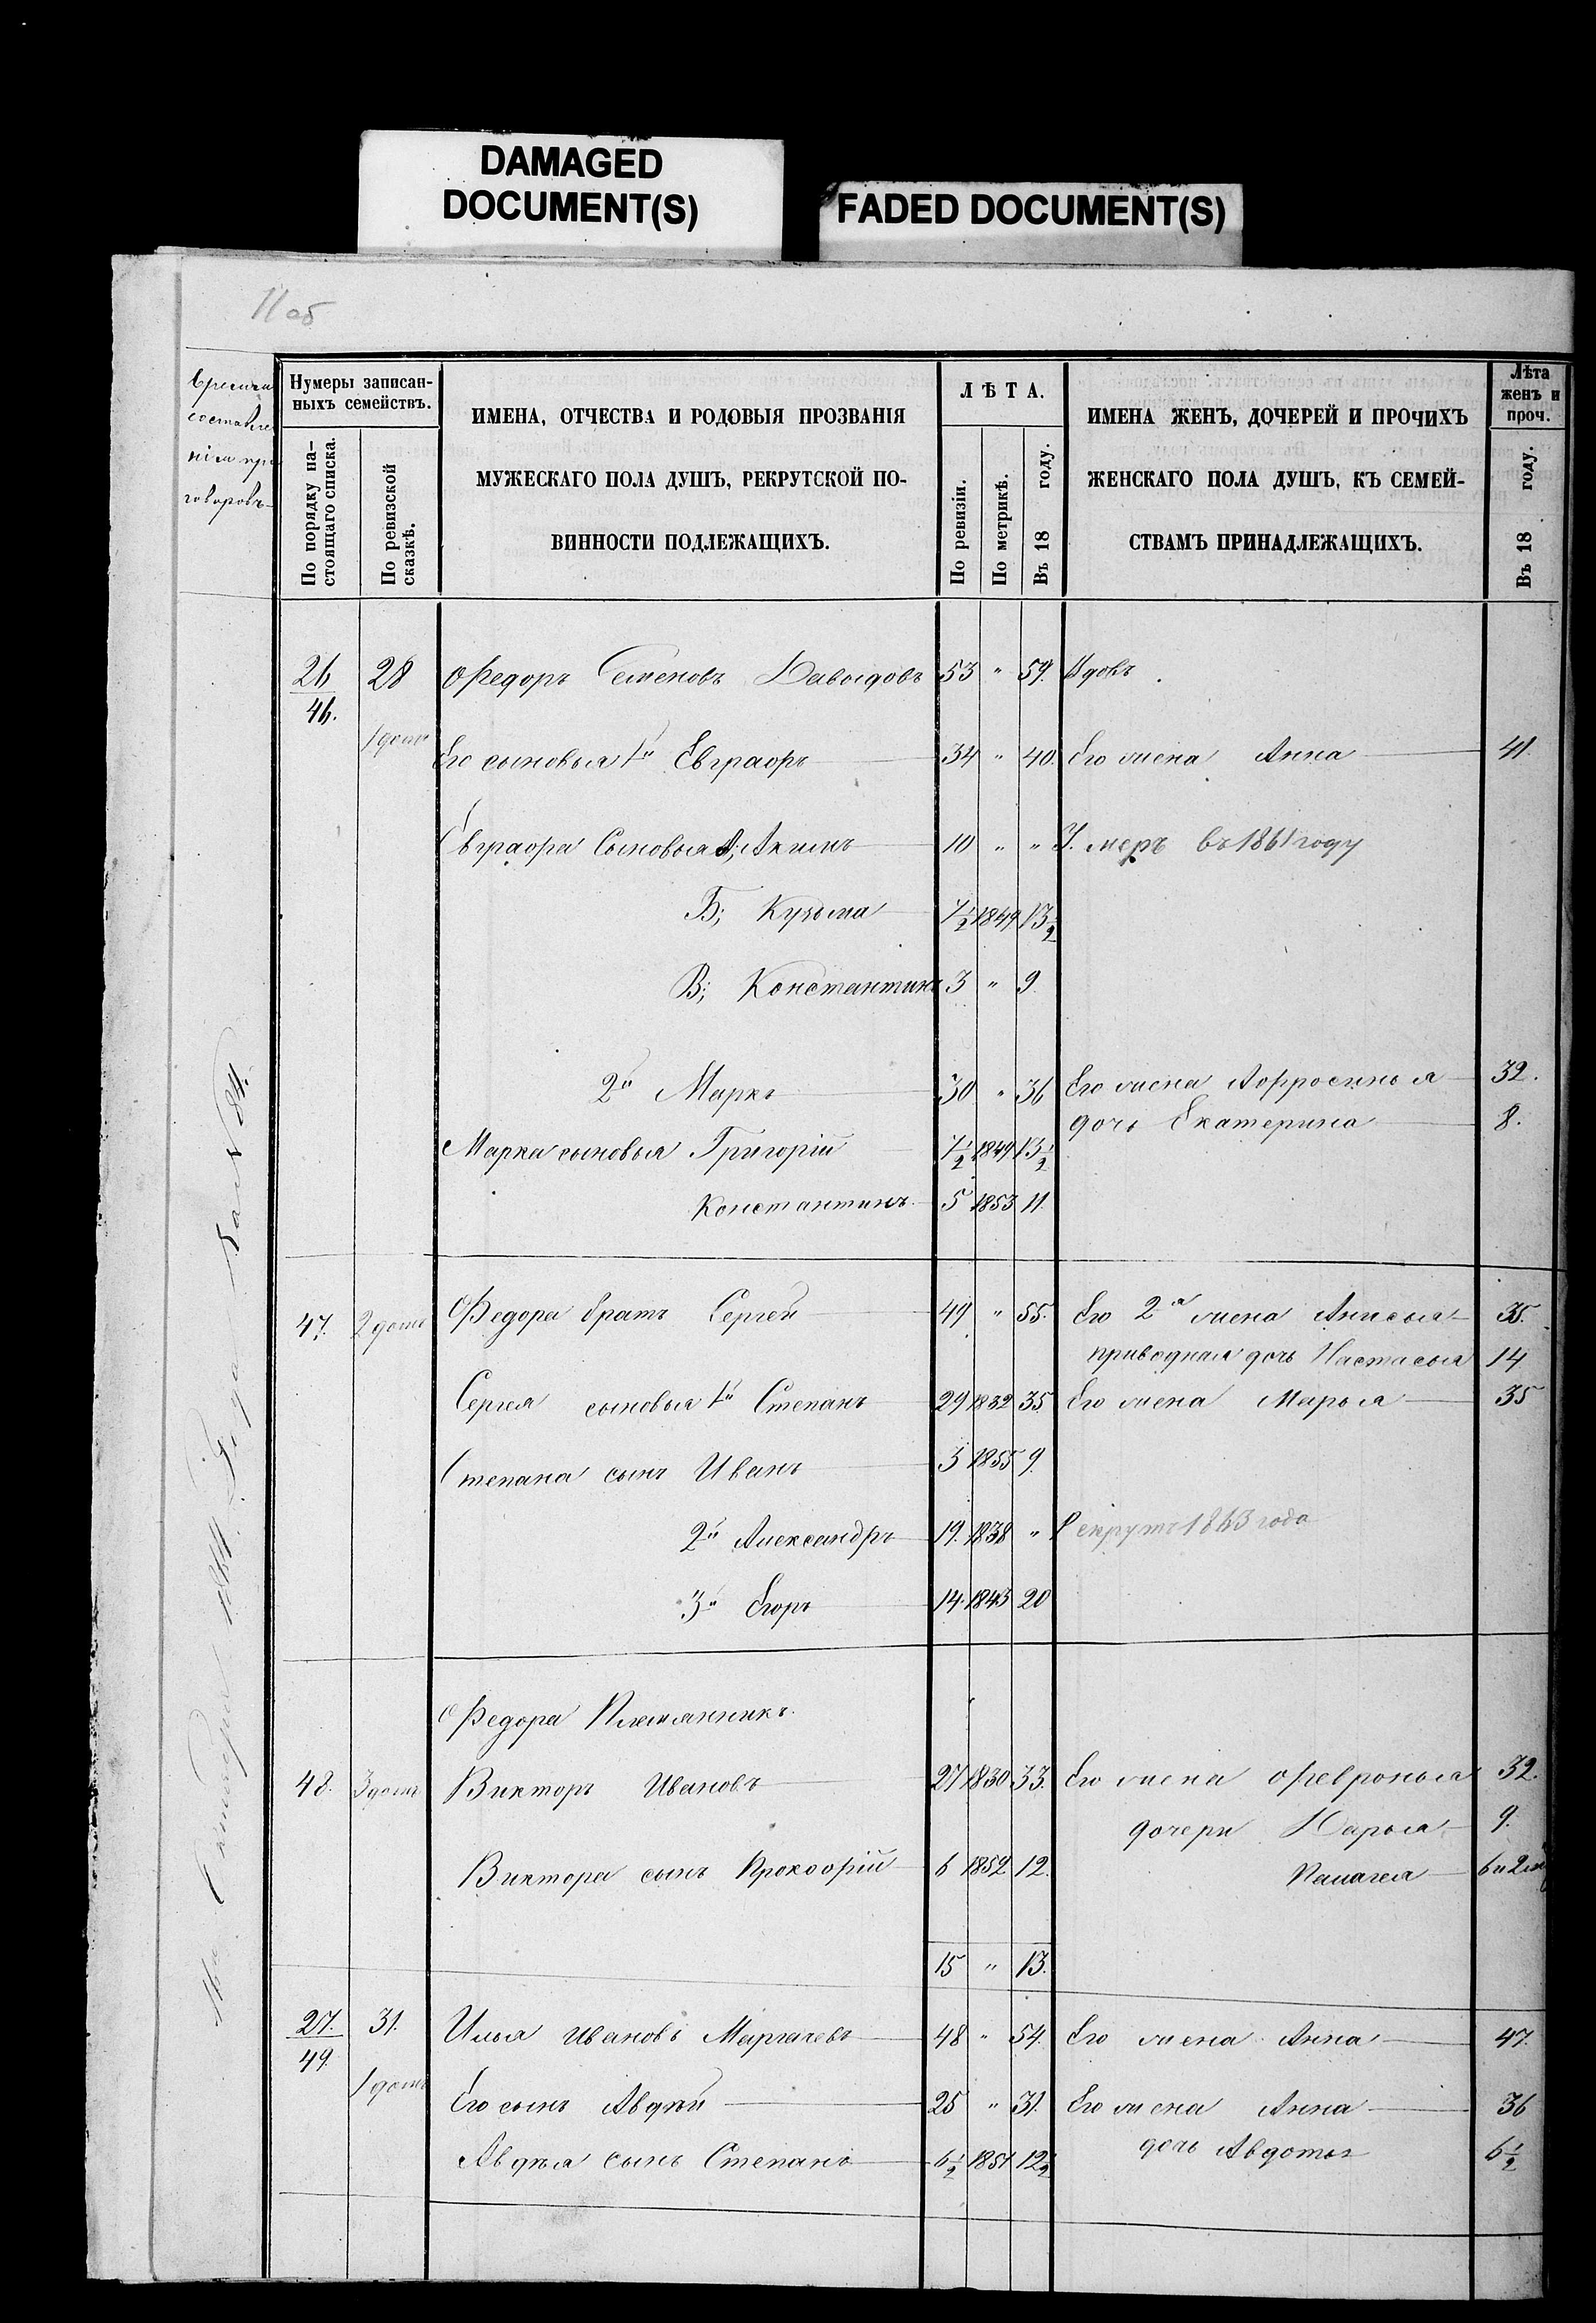 DAMAGED
DOCUMENT(S)
FADED DOCUMENT(S)
11 об
Время
составле
нія при
говоровъ
Нумеры записан-
ныхъ семействъ.
По порядку на-
стоящаго списка.
По ревизской
сказкѣ.
ИМЕНА, ОТЧЕСТВА И РОДОВЫЯ ПРОЗВАНІЯ
МУЖЕСКАГО ПОЛА ДУШЪ, РЕКРУТСКОЙ ПО-
ВИННОСТИ ПОДЛЕЖАЩИХЪ.
ЛѢТА.
По ревизіи.
По метрикѣ.
Въ 18 году.
ИМЕНА ЖЕНЪ, ДОЧЕРЕЙ И ПРОЧИХЪ
ЖЕНСКАГО ПОЛА ДУШЪ, КЪ СЕМЕЙ-
СТВАМЪ ПРИНАДЛЕЖАЩИХЪ.
Лѣта
женъ и
проч.
Въ 18 году.
26 28 Ѳедоръ Семеновъ Давыдовъ 53 " 59. Вдовъ
46.
1 домъ
Его сыновья 1й Евграфъ 34 " 40. Его жена Анна 41.
Евграфа Сыновья А; Акимъ 10 " " Умеръ въ 1861 году
Б; Кузьма 7½ 1849 13½
В; Константинъ 3 " 9
2й Маркъ 30 " 36 Его жена Афросинья 32.
дочь Екатерина 8.
Марка сыновья Григорій 7½ 1849 13½
Константинъ 5 1853 11.
47. 2 домъ Ѳедора братъ Сергей 49 " 55. Его 2я жена Анисья 35.
приводная дочь Настасья 14
Сергея сыновья 1й Степанъ 29 1832 35 Его жена Марья 35
Степана сынъ Иванъ 3 1855 9.
2й Александръ 19. 1838 " Рекрутъ 1863 года
3й Егоръ 14. 1843 20
Ѳедора Племянникъ
48. 3 домъ Викторъ Ивановъ 27 1830 33. Его жена Февронья 32.
дочери Дарья 9.
Виктора сынъ Прокофій 6 1852 12. Пелагея 6 и 2
15 " 13.
27. 31. Илья Ивановъ 48 " 54. Его жена Анна 47.
49
1 домъ
Его сынъ Авдѣй 25 " 31. Его жена Анна 36
дочь Авдотья 6½
Авдѣя сынъ Степанъ 6½ 1851 12½